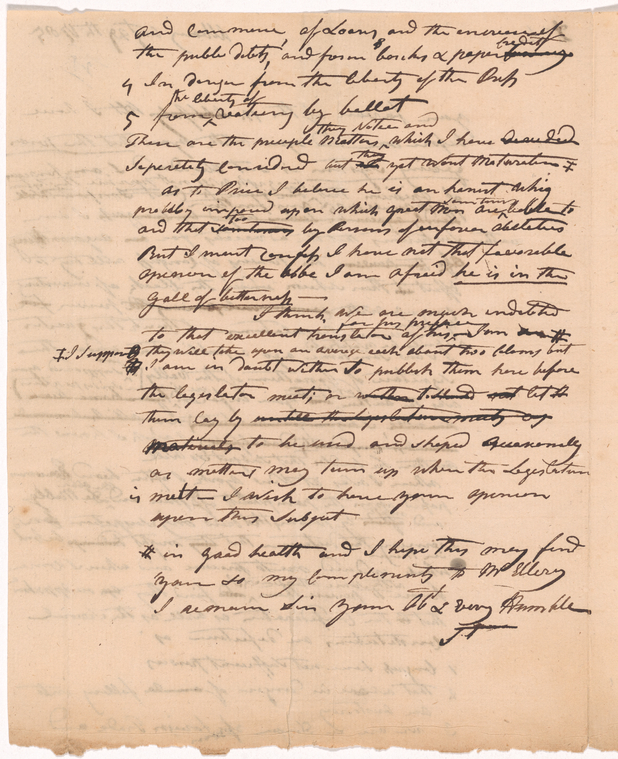 and commerce, of Loans and the increase of
the public debts, and forms banks & paper credit
4 In danger from the liberty of the Press
5 from the liberty of voating by ballot
These are the principle Matters they Notice and which I have
Seperetly considered but they yet want Maturation ‡
as to Price I believe he is an honist Whig
probbly imposed upon which great men are liable to
and that by Persons of inferour abeleties
But I must confess I have not that favorable
openion of the abbe I am afraid he is in the
Gall of bitterness —
I think we are mutch indebted
to that excellent translator for his preface I am #
‡ I suppose they will take upon an average each about two colums but
I am in doubt wether to publish them here before
the legislator meet; or let
them lay by untill the legislature meets
to be used and shaped occasionally
as matters may turn up when the Legislature
is mett — I wish to have your openion
upon this Subject
# in good health and I hope this may find
you so my complements to Mr Ellery
I remain Sir your Obt & very Humble